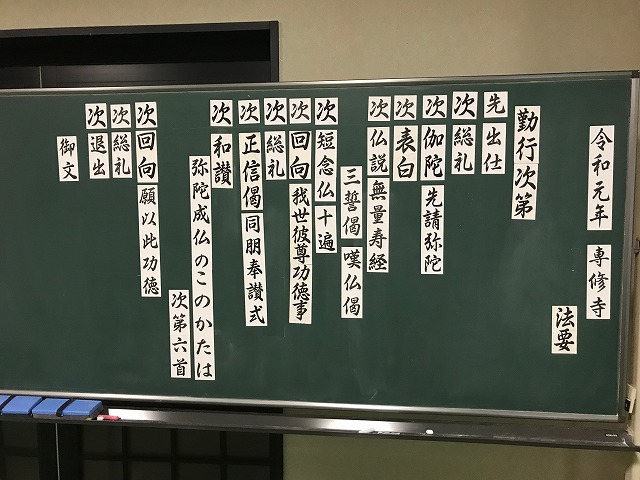 令和元年 専修寺
法要
勤行次第
先 出仕
次 総礼
次 伽陀 先請弥陀
次 表白
次 仏説無量寿経
三誓偈 嘆仏偈
次 短念仏十遍
次 回向 我世彼尊功徳事
次 総礼
次 正信偈 同朋奉讃式
次 和讃
弥陀成仏のこのかたは
次第六首
次 回向 願以此功徳
次 総礼
次 退出
御文